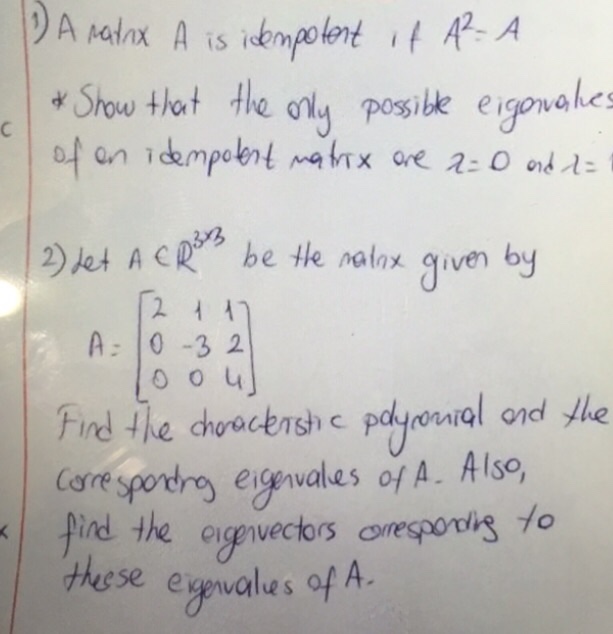 1) A matrix A is idempotent if A² = A
* Show that the only possible eigenvalues
of an idempotent matrix are λ=0 and λ=1
2) Let A ∈ ℝ³ˣ³ be the matrix given by
A = [2 1 1
0 -3 2
0 0 4]
Find the characteristic polynomial and the
corresponding eigenvalues of A. Also,
find the eigenvectors corresponding to
these eigenvalues of A.